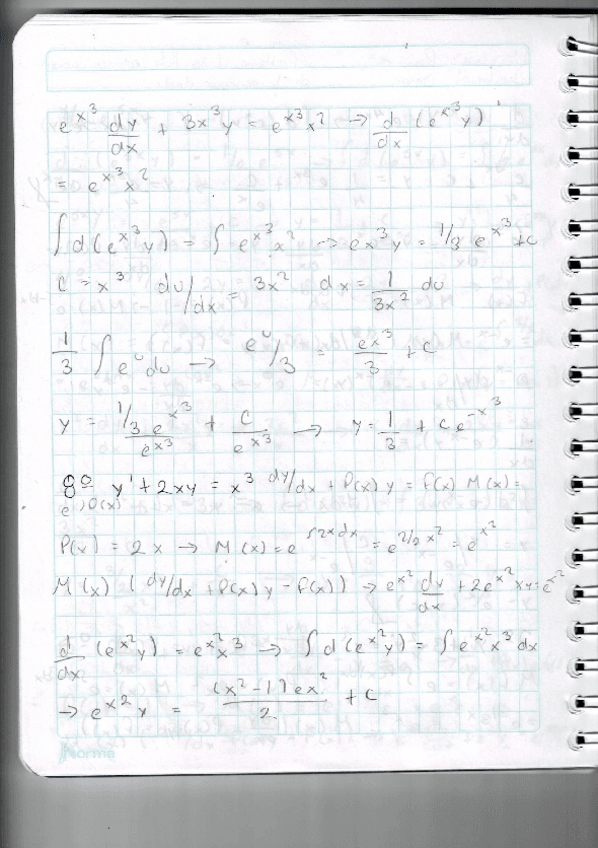 e^x³ dy/dx + 3x³y = e^x³ x² → d/dx (e^x³ y)
= e^x³ x²
∫ d(e^x³ y) = ∫ e^x³ x² → ex³y = 1/3 e^x³ + c
C = x³ du/dx = 3x² dx = 1/3x² du
1/3 ∫ e^u du → e^u/3 = ex³/3 + c
y = 1/3 e^x³/e^x³ + C/e^x³ → y = 1/3 + c e^-x³
8º y' + 2xy = x³ dy/dx + P(x) y = f(x) M(x) =
e^∫P(x)
P(x) = 2x → M(x) = e^∫2xdx = e^2/2 x² = e^x²
M(x) (dy/dx + P(x) y - f(x)) → e^x² dy/dx + 2e^x² xy = e^x²
d/dx (e^x² y) = e^x² x³ → ∫ d(e^x² y) = ∫ e^x² x³ dx
→ e^x² y = (x² - 1) ex²/2 + C
Norma